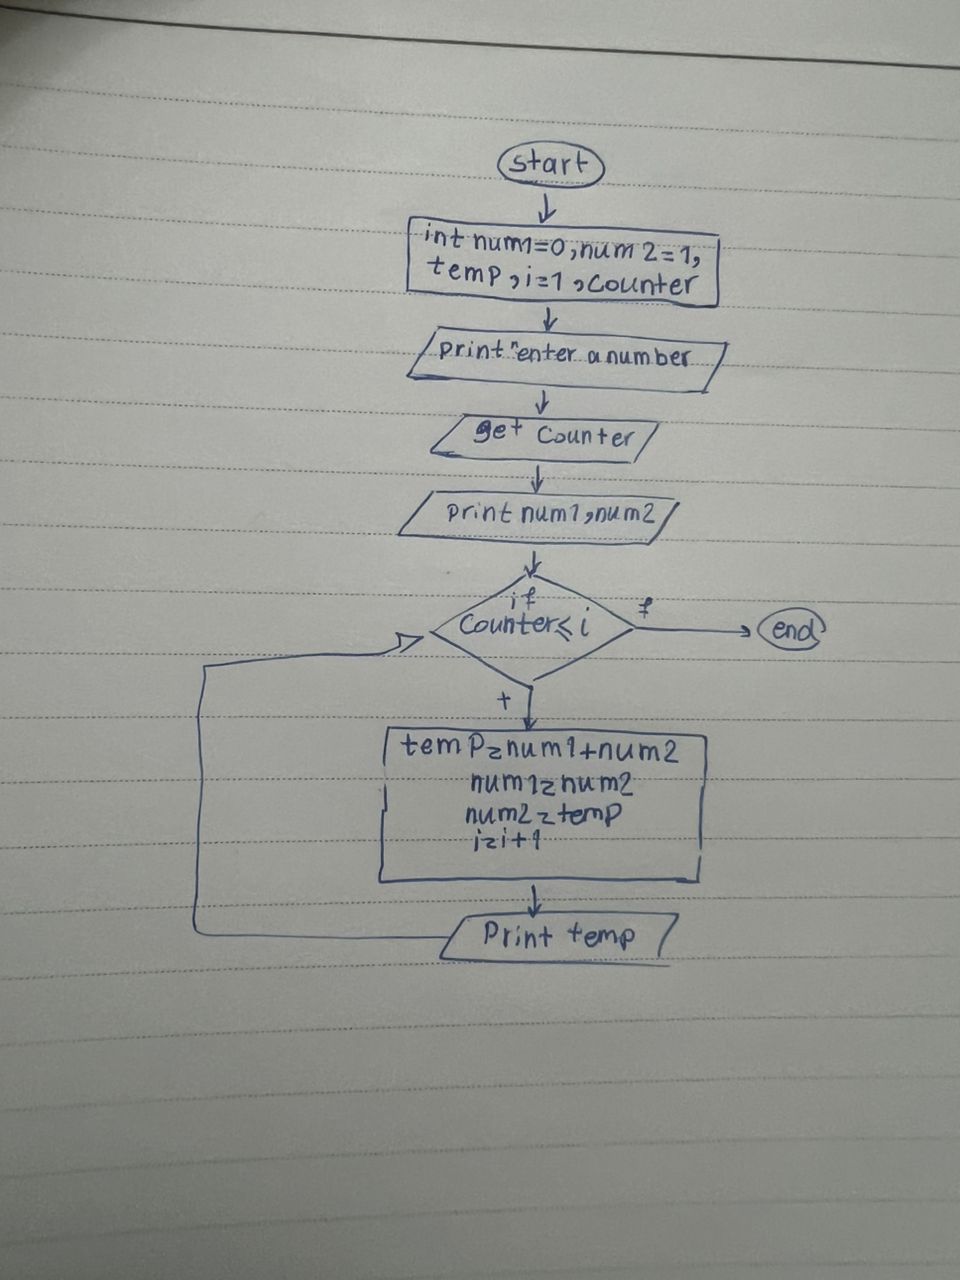 start
int num1=0,num2=1,
temp,i=1,Counter
print "enter a number
get Counter
print num1,num2
if
Counter≤i
f
end
t
temp=num1+num2
num1=num2
num2=temp
i=i+1
Print temp